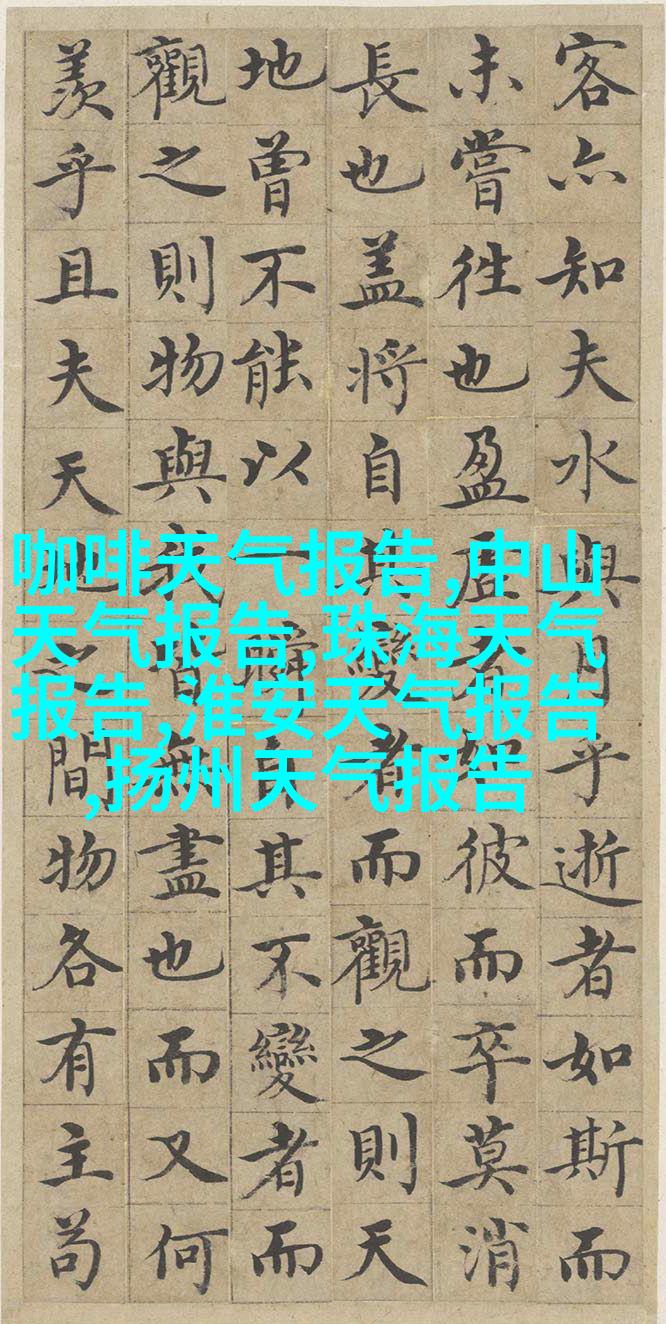 客亦知夫水與月乎逝者如斯而
未嘗往也盈虛者如彼而卒莫消
長也盖將自其變者而觀之則天
地曾不能以一瞬自其不變者而
觀之則物與我皆無盡也而又何
羨乎且夫天地之間物各有主苟
咖啡天气报告,中山
天气报告,珠海天气
报告,淮安天气报告
,扬州天气报告